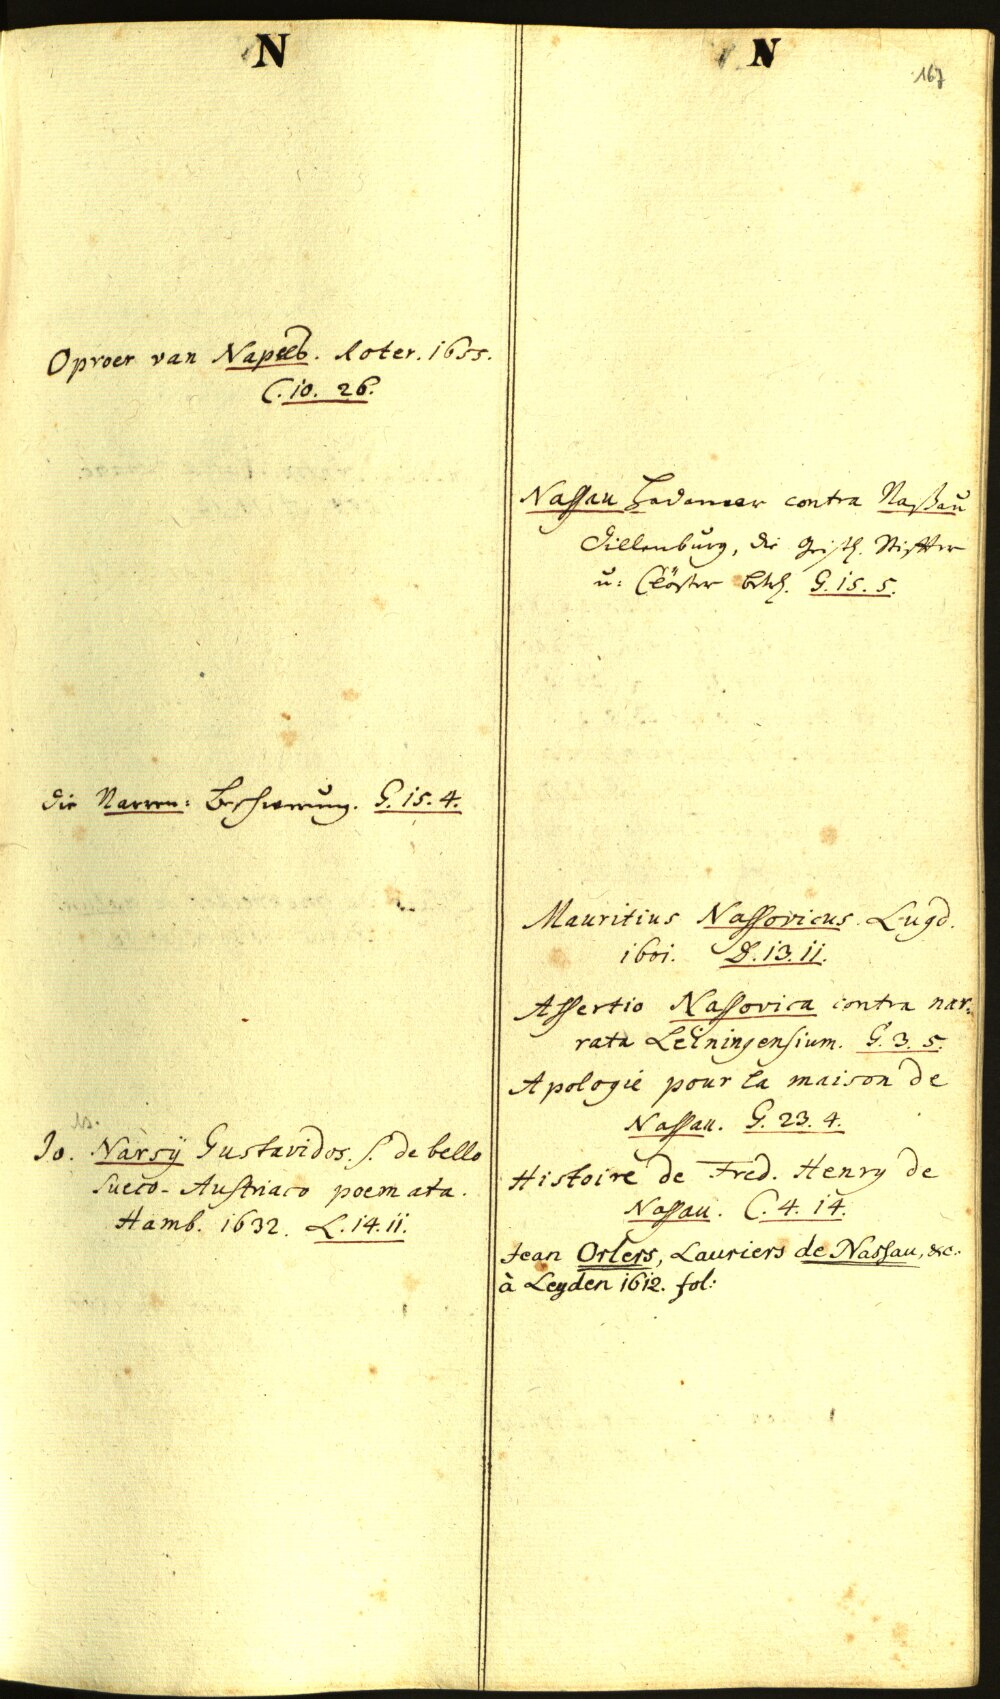 N
Oproer van Napels. Roter. 1655.
C. 10. 26.
Die Narren: Beschwerung. G. 15. 4.
M.
Jo. Narsÿ Gustavidos. s. de bello
Sueco-Austriaco poemata.
Hamb. 1632. L. 14. 11.
N
167
Nassau Hadamar contra Naßau
Dillenburg, die Geistl. Stiffter
u: Clöster betr. G. 15. 5.
Mauritius Nassovicus. Lugd.
1601. D. 13. 11.
Assertio Nassovica contra nar-
rata Leiningensium. G. 3. 5.
Apologie pour la maison de
Nassau. G. 23. 4.
Histoire de Fred. Henry de
Nassau. C. 4. 14.
Jean Orlers, Lauriers de Nassau, &c.
à Leyden 1612. fol: